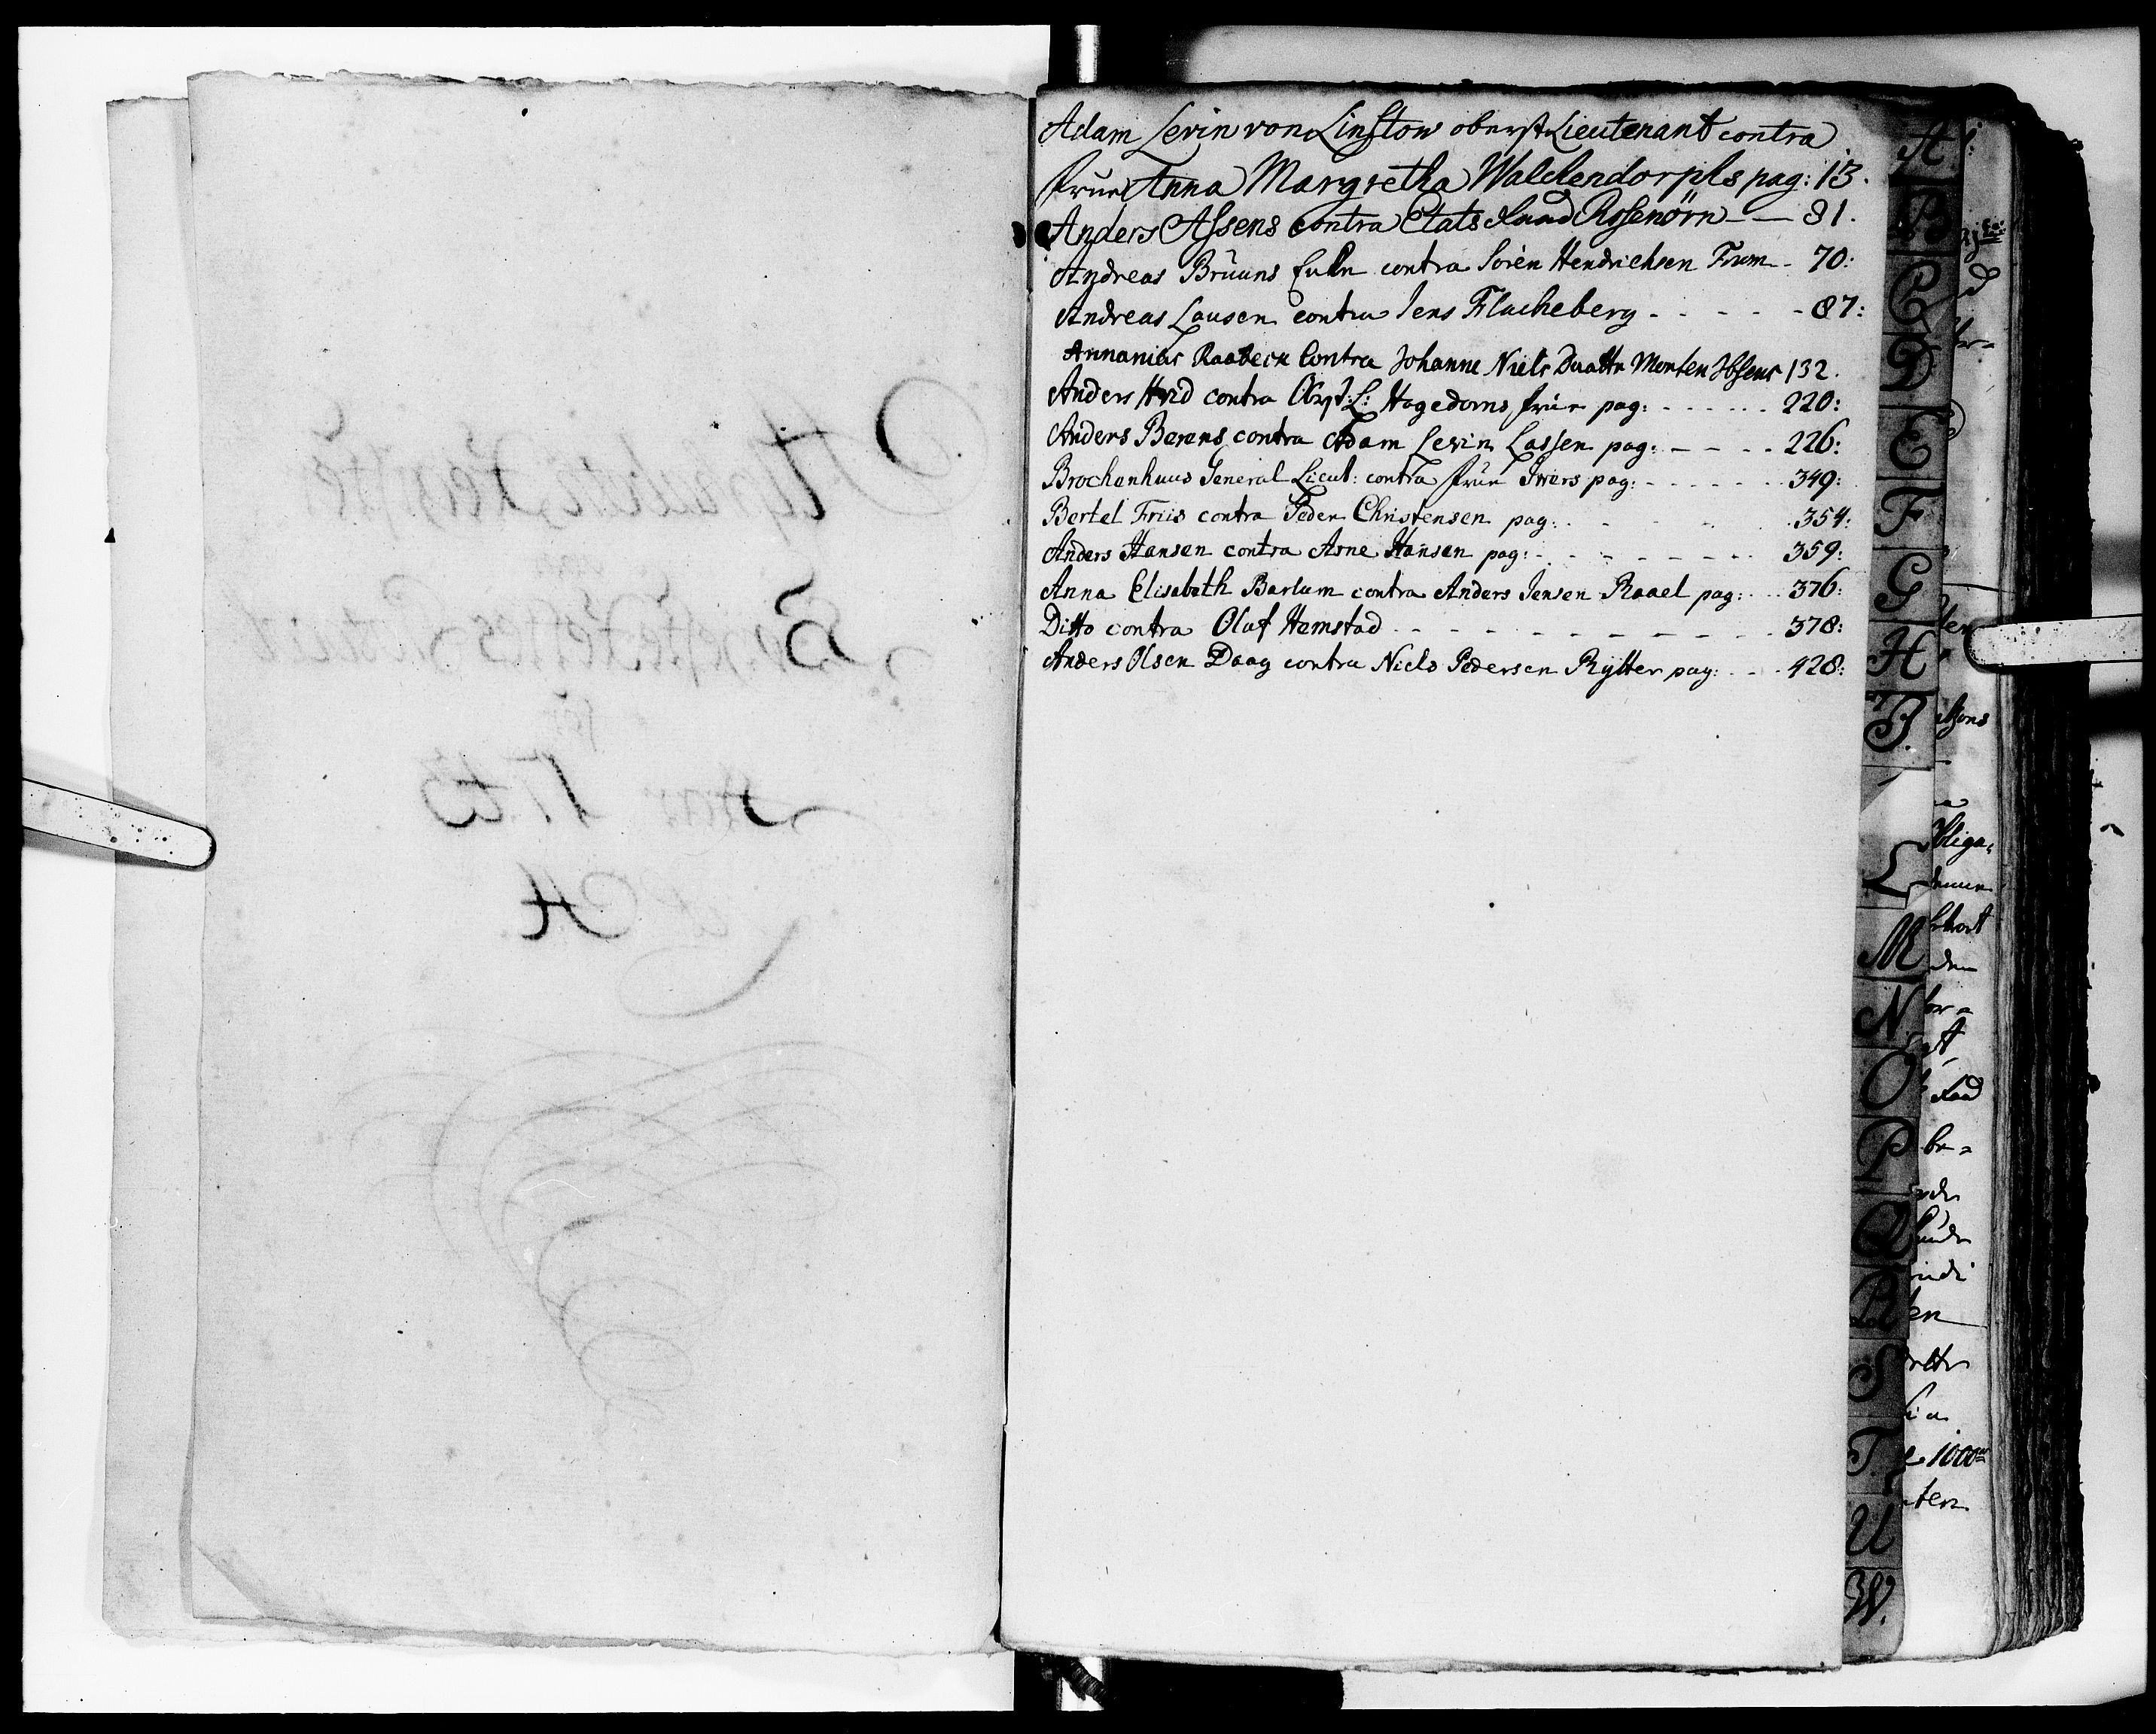 Adam Levin von Linstow oberst Lieutenant contra
frue Anna Margretha Walckendorphs pag: 13.
Anders Assens contra Etats Raad Rosenørn — 81.
Andreas Brüuns contra Sören Hendrichsen From - 70:
Andreas Lausen contra Jens Flacheberg - - - - - 87:
Annanias Raabeck Contra Johanne Niels Daatter Morten Ibsens 132.
Anders Hvid contra Obrst: L: Hagedorns frue pag: - - - - - - 220:
Anders Berens contra Adam Levin Lassen pag: - - - - 226:
Brochenhuus General Lieut: contra frue Iwers pag: - - - - - - - 349:
Bertel Friis contra Peder Christensen pag: - - - - - 354:
Anders Hansen contra Arne Hansen pag: - - - - - - - - 359:
Anna Elisabeth Barlum contra Anders Jensen Raael pag: - - - 376:
Ditto contra Oluf Hemstad - - - - - - - - - - 378:
Anders Olsen Daag contra Niels Pedersen Rytter pag: - - - 428:
A
B
C
D
E
F
G
H
I
L
M
N
O
P
Q
R
S
T
U
W.